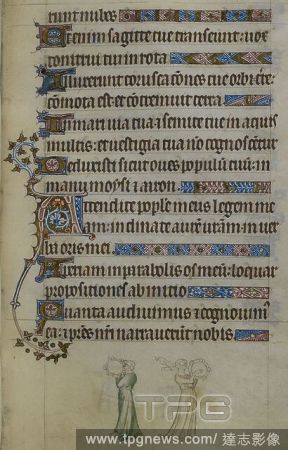 runt nubes
Etenim sagitte tue transeunt: vox
tonitrui tui in rota
Illuxerunt coruscacones tue orbi tre:
comota est et contremuit terra
In mari via tua i semite tue in aquis
multis: et vestigia tua no cognoscentur
Deduxisti sicut oves populu tuu: in
manu moysi i aaron.
Attendite pople meus legem me
am: inclinate aurem uram in ver
ba oris mei.
Aperiam in parabolis os meu: loquar
propositiones ab inicio
Quanta audivimus i cognovim
ea: i pres nri narraverut nobis.
TPG
www.tpgnews.com / 達志影像